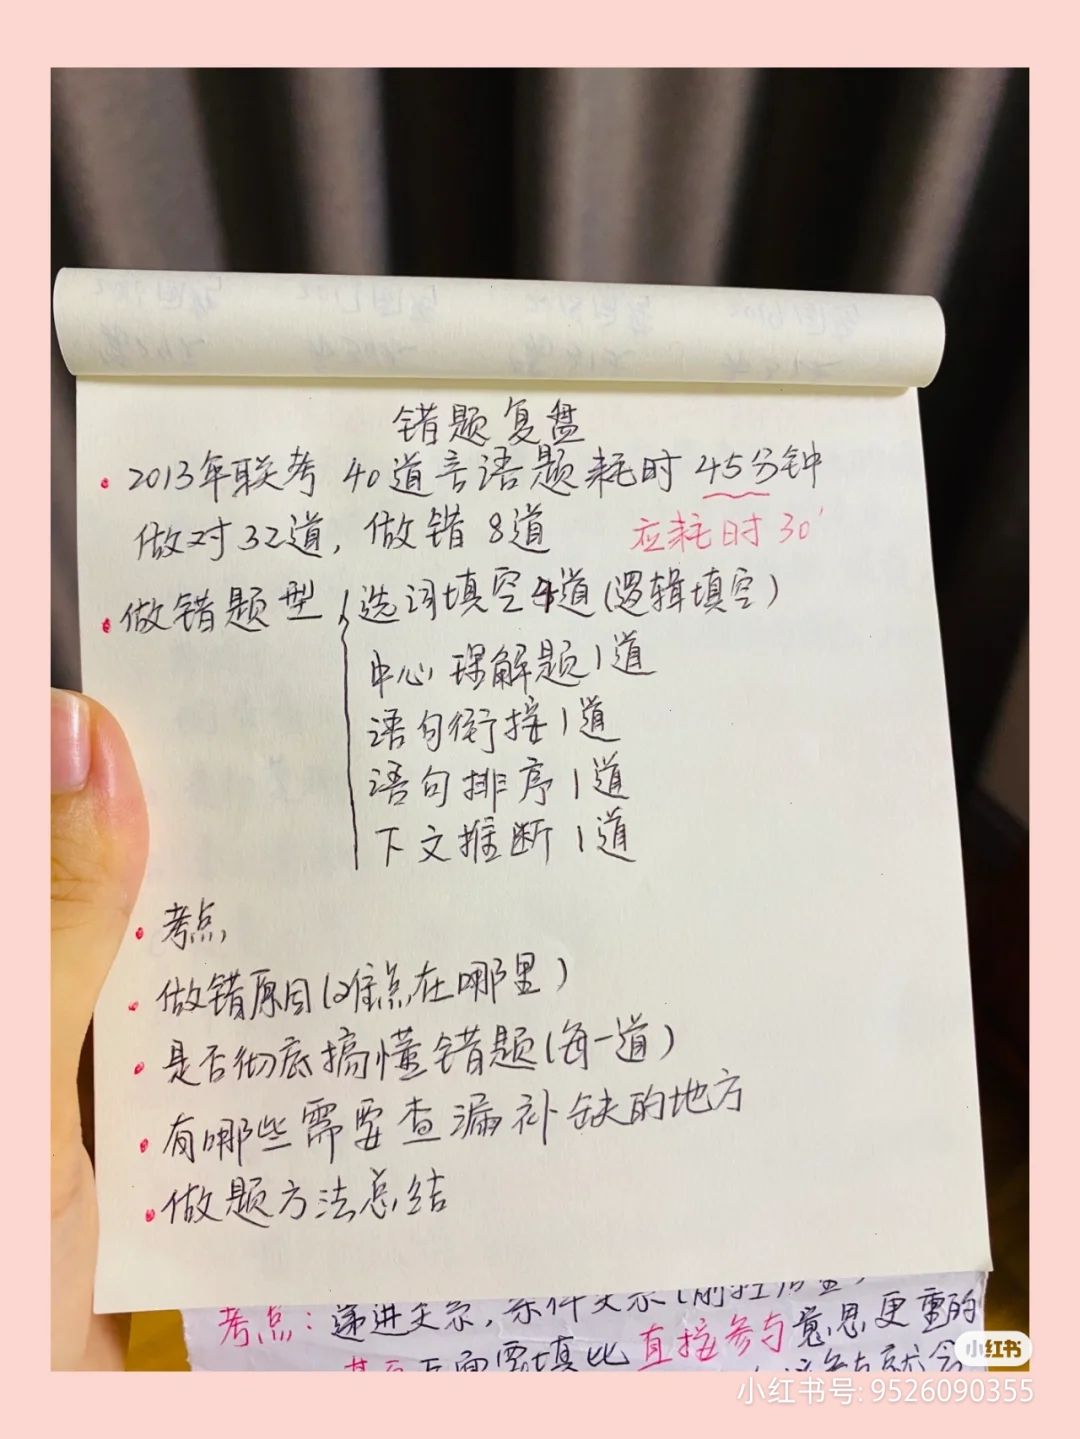 错题复盘
2013年联考 40道言语题耗时 45分钟
做对32道,做错8道 应耗时30'
做错题型 选词填空4道(逻辑填空)
中心理解题1道
语句衔接1道
语句排序1道
下文推断1道
考点
做错原因(难点在哪里)
是否彻底搞懂错题(每一道)
有哪些需要查漏补缺的地方
做题方法总结
考点:递进关系,条件关系(前轻后重)
后面需填比直接参与意思更重的
小红书
小红书号:9526090355